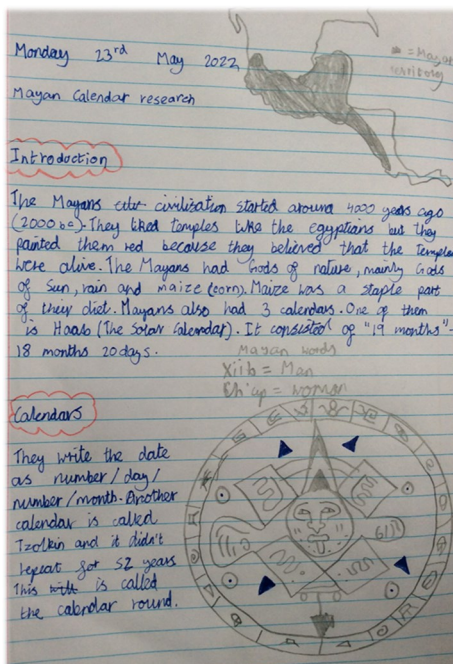 Monday 23rd May 2022
= Mayan
territory
Mayan Calendar research
Introduction
The Mayans civilisation started around 4000 years ago
(2000 bc). They liked temples like the egyptians but they
painted them red because they believed that the Temples
were alive. The Mayans had Gods of nature, mainly Gods
of Sun, rain and maize (corn). Maize was a staple part
of their diet. Mayans also had 3 calendars. One of them
is Haab (The Solar Calendar). It consisted of "19 months" -
18 months 20 days.
Mayan words
Xiib = Man
Ch'up = woman
Calendars
They write the date
as number/day/
number/month. Another
calendar is called
Tzolkin and it didn't
repeat for 52 years
This is called
the calendar round.